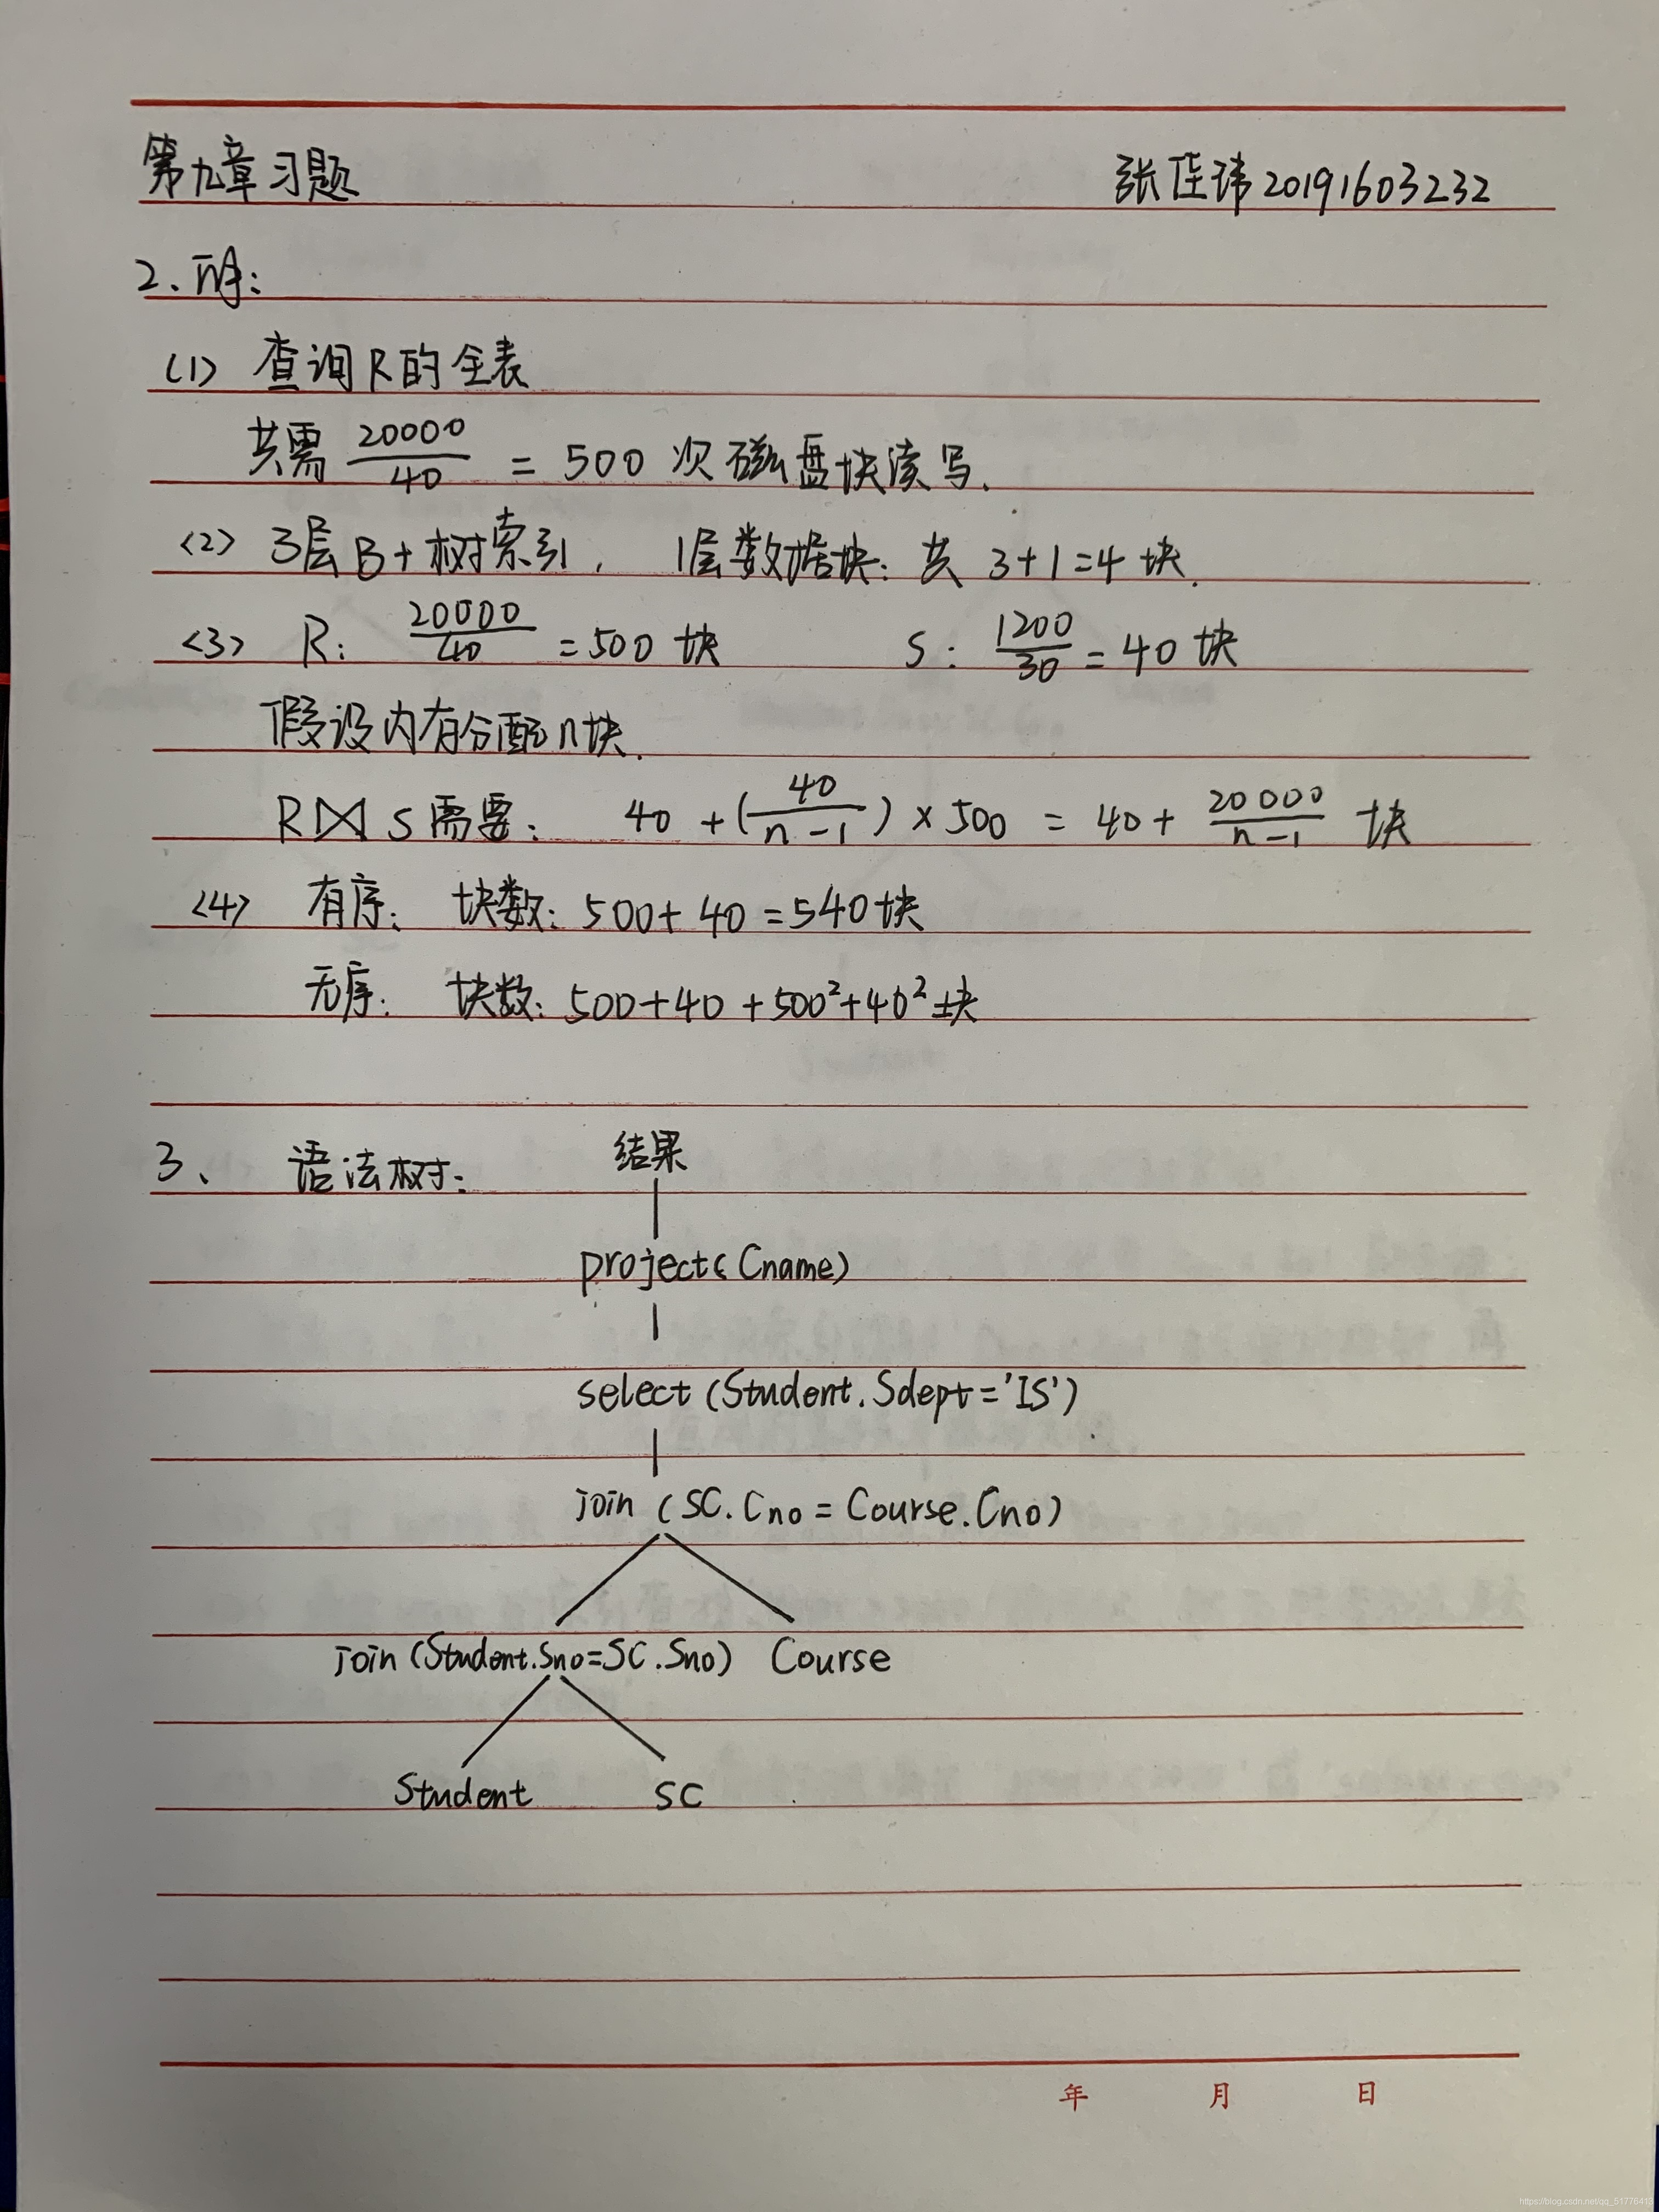 第九章习题 张佳玮 20191603232
2. 解:
(1) 查询R的全表
共需 20000/40 = 500 次磁盘块读写.
<2> 3层B+树索引, 1层数据块: 共 3+1=4 块.
<3> R: 20000/40 = 500 块 S: 1200/30 = 40 块
假设内存分配n块.
R⋈S需要: 40 + (40/(n-1)) × 500 = 40 + 20000/(n-1) 块
<4> 有序: 块数: 500+40=540块
无序: 块数: 500+40+500²+40² 块
3、 语法树: 结果
project(Cname)
select (Student.Sdept='IS')
join (SC.Cno = Course.Cno)
join (Student.Sno=SC.Sno) Course
Student SC
年 月 日